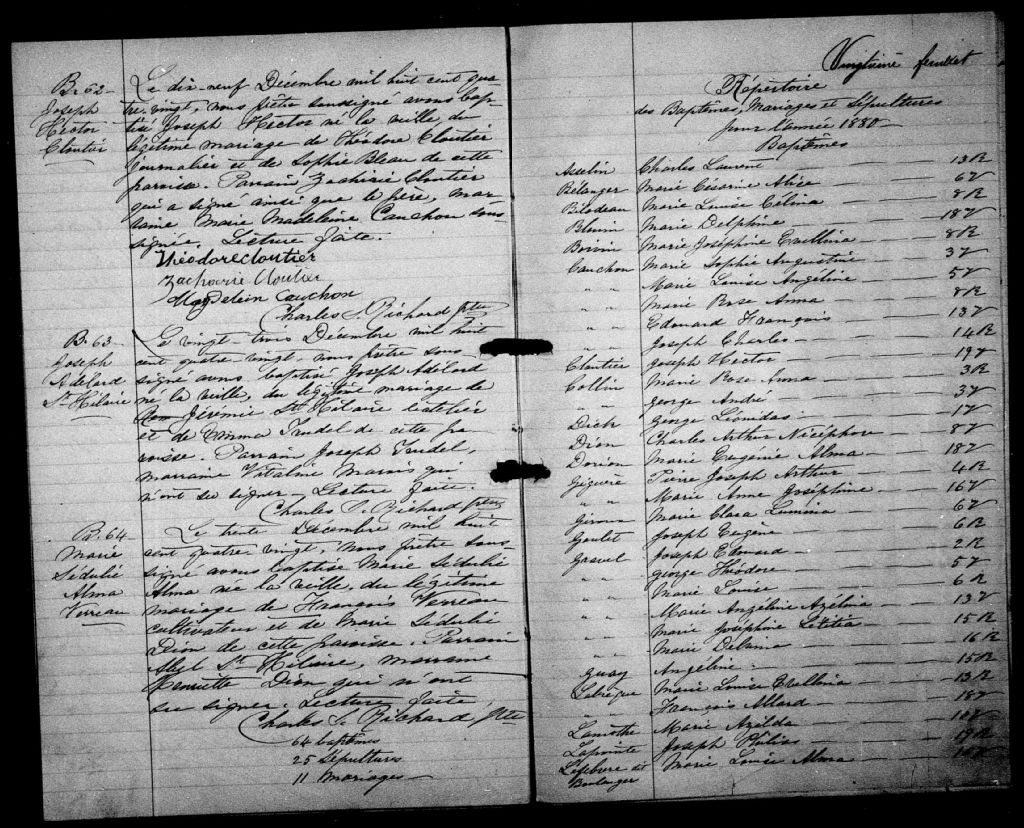 B. 62
Joseph
Hector
Cloutier
Le dix-neuf Décembre mil huit cent qua
tre-vingt, nous prêtre soussigné avons bap
tisé Joseph Hector né la veille du
légitime mariage de Théodore Cloutier
journalier et de Sophie Bleau de cette
paroisse. Parrain Zacharie Cloutier
qui a signé ainsi que le père, mar
raine Marie Madeleine Cauchon sous
signée. Lecture faite.
Théodore Cloutier
Zacharie Cloutier
Magdelein Cauchon
Charles S. Richard Ptre
B. 63
Joseph
Adélard
St Hilaire
Le vingt trois Décembre mil huit
cent quatre vingt, nous prêtre sous
signé avons baptisé Joseph Adélard
né la veille, du légitime mariage de
Jérémie St Hilaire
et de Emma Trudel de cette pa
roisse. Parrain Joseph Trudel,
marraine Vitaline Marois qui
n'ont su signer. Lecture faite.
Charles S. Richard ptre
B. 64
Marie
Sédulie
Alma
Verreau
Le trente Décembre mil huit
cent quatre vingt, nous prêtre sous-
signé avons baptisé Marie Sédulie
Alma née la veille, du légitime
mariage de François Verreau
cultivateur et de Marie Sédulie
Dion de cette paroisse. Parrain
Abel St Hilaire, marraine
Henriette Dion qui n'ont
su signer. Lecture faite.
Charles S. Richard, Ptre
64 baptêmes
25 Sépultures
11 Mariages
Vingtième feuillet
Répertoire
des Baptêmes, Mariages et Sépultures
pour l'année 1880
Baptêmes
Asselin Charles Laurent 13 R
Bélanger Marie Césarine Alice 6 V
Bilodeau Marie Louise Célina 8 R
Blouin Marie Delphine 18 V
Boivin Marie Joséphine Evellina 8 R
Cauchon Marie Sophie Augustine 3 V
" " Marie Louise Angéline 5 V
" " Marie Rose Anna 8 R
" " Edouard François 13 V
" " Joseph Charles 14 R
Cloutier Joseph Hector 19 V
Collin Marie Rose Anna 3 R
" " George André 3 V
Dick George Léonidas 1 V
Dion Charles Arthur Nicéphore 8 V
Dorion Marie Eugénie Alma 18 V
Giguère Pierre Joseph Arthur 4 R
" " Marie Anne Joséphine 16 V
Giroux Marie Clara Luminia 6 V
Goulet Joseph Eugène 6 R
Gravel Joseph Edmond 2 R
" " George Théodore 5 V
" " Marie Louise 6 R
" " Marie Angéline Azélina 13 V
" " Marie Joséphine Letitia 15 R
" " Marie Delvina 16 R
Guay Angélina 15 R
Labrèque Marie Louise Evellina 13 R
" " François Allard 18 V
Lamothe Marie Azilda 10 V
Lapointe Joseph Philias 19 R
Lefebvre dit Marie Louise Alma
Boulanger